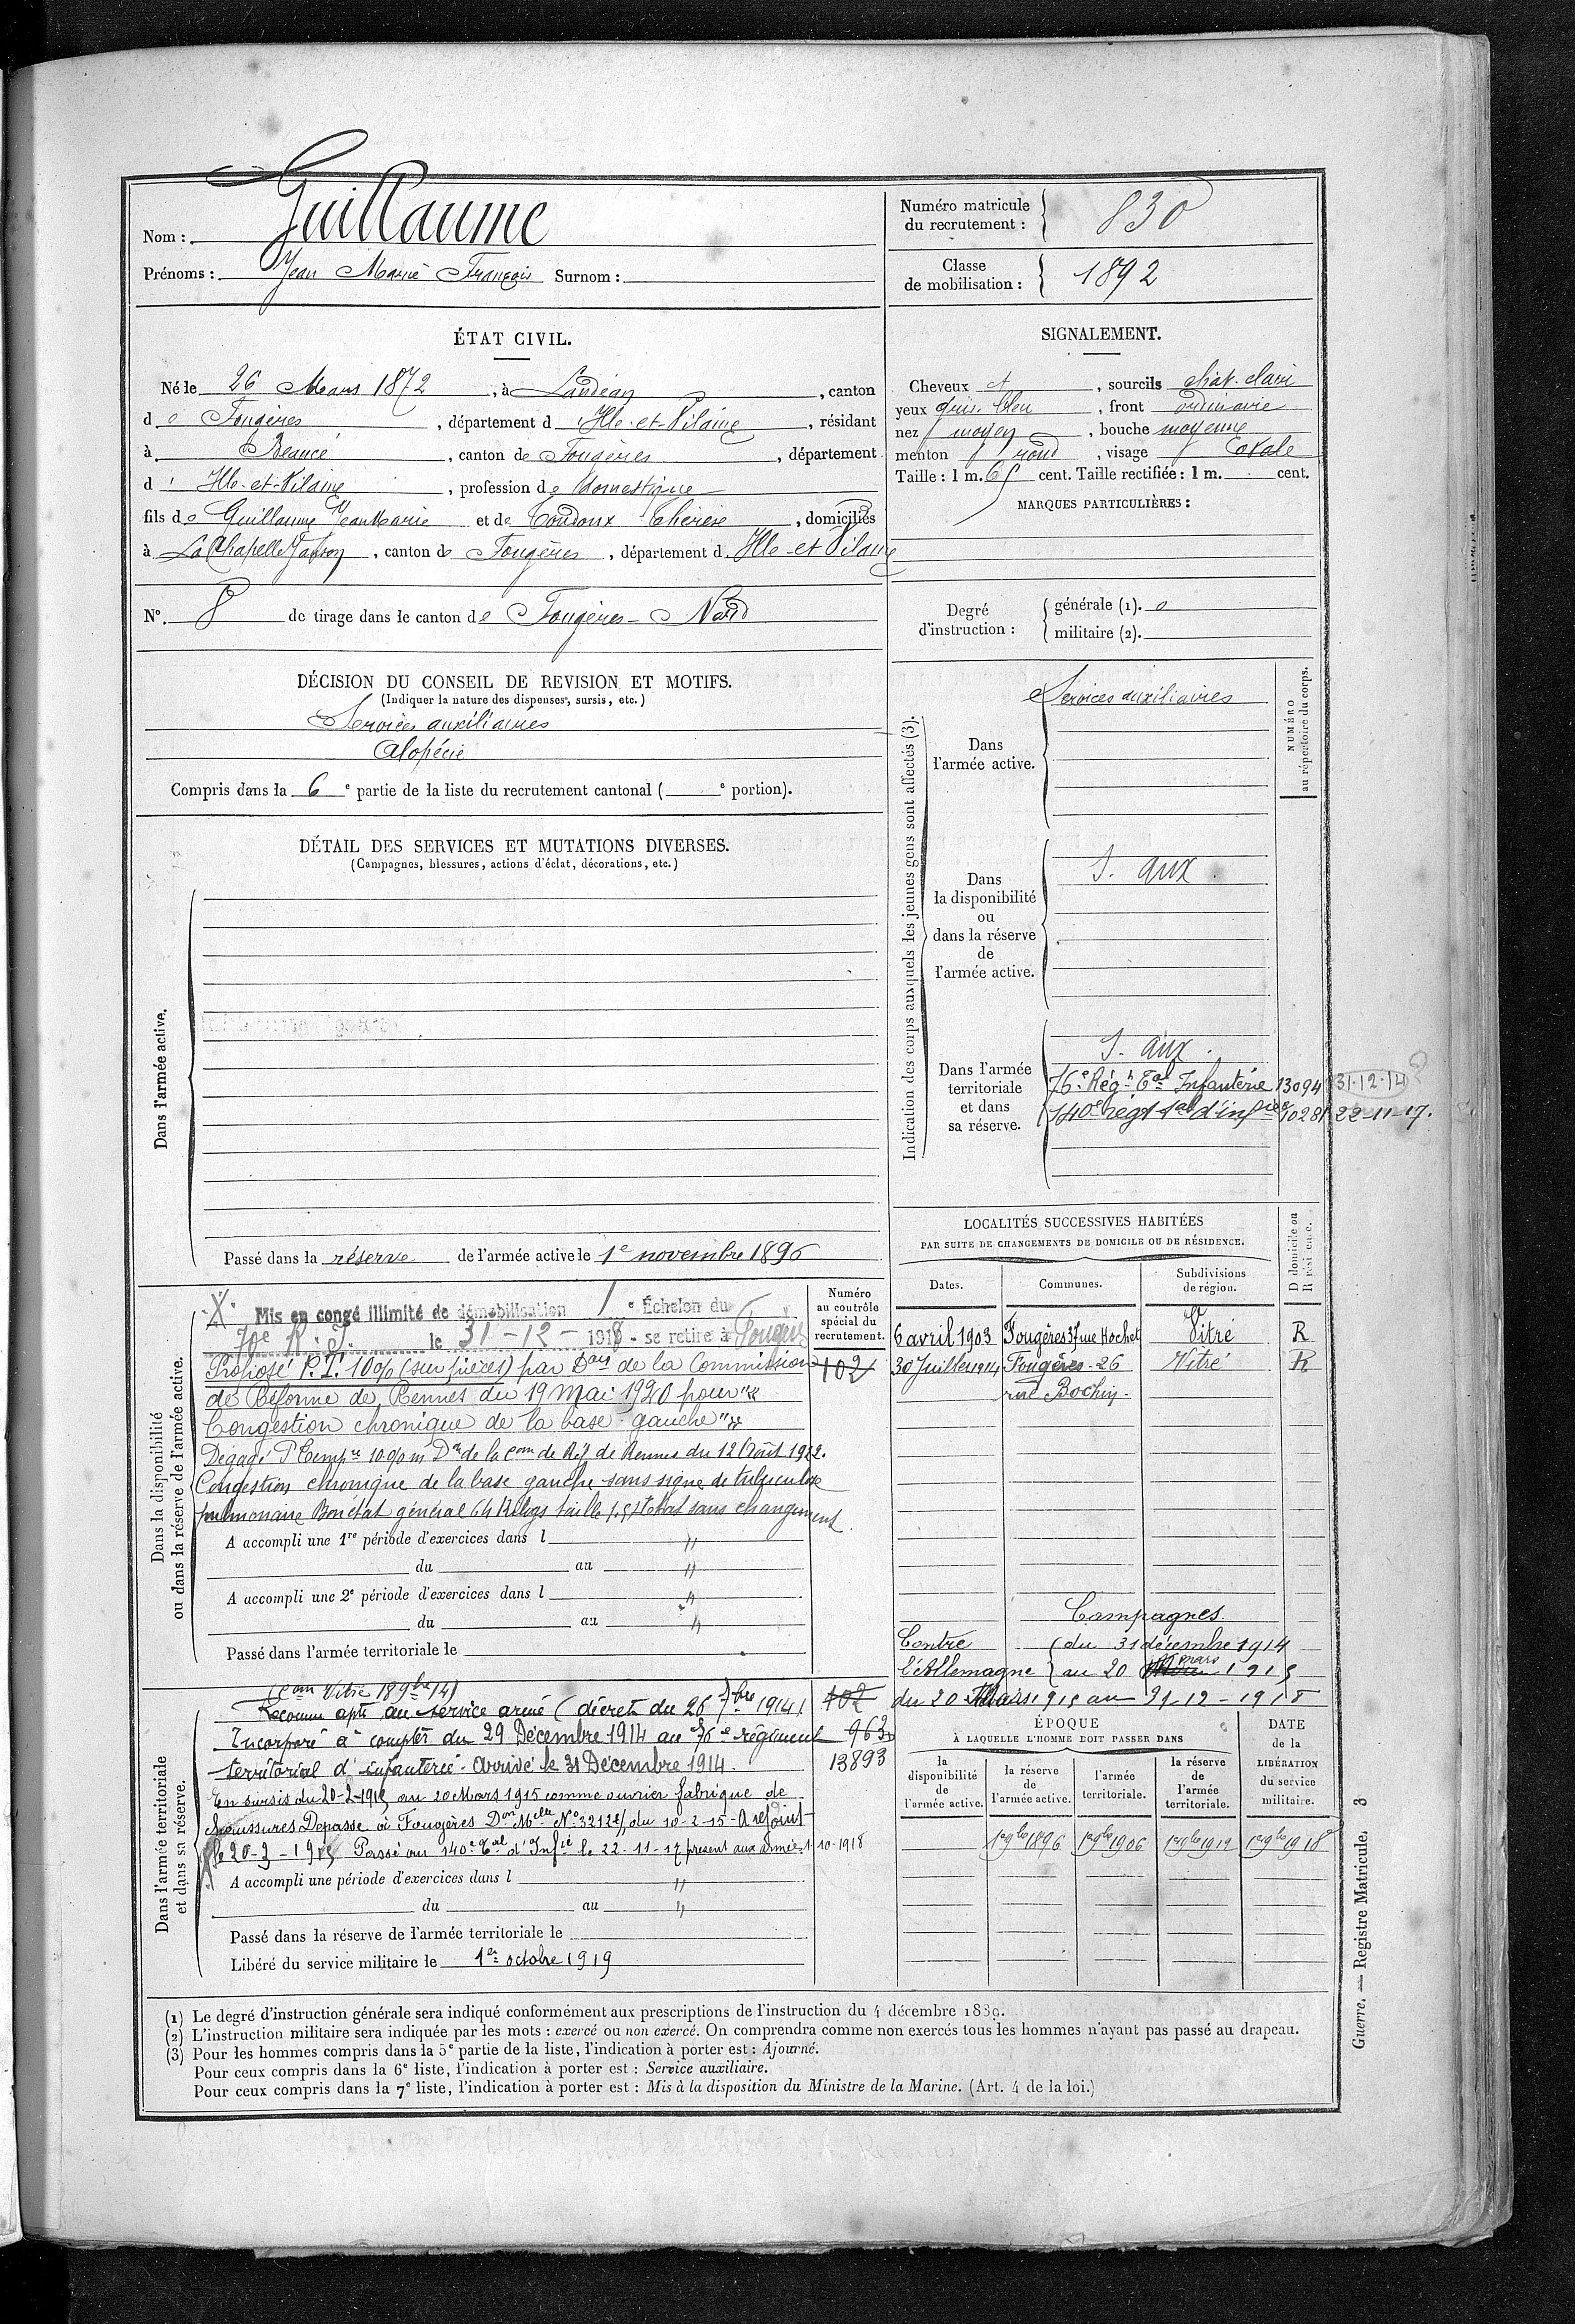 Guillaume
Nom :
Prénoms : Jean Marie François Surnom :
Numéro matricule
du recrutement : 830
Classe
de mobilisation : 1892
ÉTAT CIVIL.
Né le 26 Mars 1872, à Landéan, canton
de Fougères, département d'Ille-et-Vilaine, résidant
à Beaucé, canton de Fougères, département
d'Ille-et-Vilaine, profession de domestique
fils de Guillaume Jean Marie et de Thérèse, domiciliés
à La Chapelle Janson, canton de Fougères, département d'Ille-et-Vilaine
N° 8 de tirage dans le canton de Fougères-Nord
SIGNALEMENT.
Cheveux et, sourcils chat. clairs
yeux gris bleu, front ordinaire
nez moyen, bouche moyenne
menton rond, visage ovale
Taille : 1 m. 65 cent. Taille rectifiée : 1 m. cent.
MARQUES PARTICULIÈRES :
Degré
d'instruction :
générale (1). 0
militaire (2).
DÉCISION DU CONSEIL DE REVISION ET MOTIFS.
(Indiquer la nature des dispenses, sursis, etc.)
Services auxiliaires
Alopécie
Compris dans la 6e partie de la liste du recrutement cantonal ( e portion).
DÉTAIL DES SERVICES ET MUTATIONS DIVERSES.
(Campagnes, blessures, actions d'éclat, décorations, etc.)
Dans l'armée active.
Passé dans la réserve de l'armée active le 1e novembre 1896
Indication des corps auxquels les jeunes gens sont affectés (3).
NUMÉRO
au répertoire du corps.
Dans
l'armée active.
Services auxiliaires
Dans
la disponibilité
ou
dans la réserve
de
l'armée active.
S. aux.
Dans l'armée
territoriale
et dans
sa réserve.
S. aux.
76e Régt Tal Infanterie 13094 31.12.14 ?
140e régt tal d'infrie 10281 22-11-17.
LOCALITÉS SUCCESSIVES HABITÉES
PAR SUITE DE CHANGEMENTS DE DOMICILE OU DE RÉSIDENCE.
Dates.
Communes.
Subdivisions
de région.
D domicile ou
R résidence.
6 avril 1903 Fougères 37 rue Hochet Vitré R
30 Juillet 1914 Fougères - 26 Vitré R
rue Bochin.
Dans la disponibilité
ou dans la réserve de l'armée active.
Numéro
au contrôle
spécial du
recrutement.
Mis en congé illimité de démobilisation 1e Échelon du
le 31-12-1918 - se retire à Fougères
Proposé P.T. 10% (sur pièces) par Don de la Commission 102
de Réforme de Rennes du 19 Mai 1920 pour "
Congestion chronique de la base gauche "
Dégagé P. Temp. 10% Don de la Com de Réf de Rennes du 12 Août 1922.
Congestion chronique de la base gauche sans signe de tuberculose
pulmonaire Bon état général 64 Kilogs taille 1.57 état sans changement
A accompli une 1re période d'exercices dans l "
du au "
A accompli une 2e période d'exercices dans l "
du au "
Passé dans l'armée territoriale le
Campagnes
Contre
l'Allemagne
du 31 décembre 1914
au 20 mars 1915
du 20 Mars 1915 au 31-12-1918
Dans l'armée territoriale
et dans sa réserve.
(Con Vitré 18 9bre 14)
Reconnu apte au service armé (décret du 26 7bre 1914). 102
Incorporé à compter du 29 Décembre 1914 au 76e régiment 963
territorial d'infanterie. Arrivé le 31 Décembre 1914. 13893
En sursis du 20-2-1915 au 20 Mars 1915 comme ouvrier fabrique de
chaussures Depasse à Fougères Don Mlle N° du 10-2-15 - A rejoint
le 20-3-1915 Passé au 140e Tal d'Infie le 22-11-17 présent aux armées 1-10-1918
A accompli une période d'exercices dans l "
du au "
Passé dans la réserve de l'armée territoriale le
Libéré du service militaire le 1er octobre 1919
ÉPOQUE
À LAQUELLE L'HOMME DOIT PASSER DANS
la
disponibilité
de
l'armée active.
la réserve
de
l'armée active.
l'armée
territoriale.
la réserve
de
l'armée
territoriale.
DATE
de la
LIBÉRATION
du service
militaire.
1er 9bre 1896 1er 9bre 1906 1er 9bre 1912 1er 9bre 1918
(1) Le degré d'instruction générale sera indiqué conformément aux prescriptions de l'instruction du 4 décembre 1889.
(2) L'instruction militaire sera indiquée par les mots : exercé ou non exercé. On comprendra comme non exercés tous les hommes n'ayant pas passé au drapeau.
(3) Pour les hommes compris dans la 5e partie de la liste, l'indication à porter est : Ajourné.
Pour ceux compris dans la 6e liste, l'indication à porter est : Service auxiliaire.
Pour ceux compris dans la 7e liste, l'indication à porter est : Mis à la disposition du Ministre de la Marine. (Art. 4 de la loi.)
Guerre. — Registre Matricule. 3